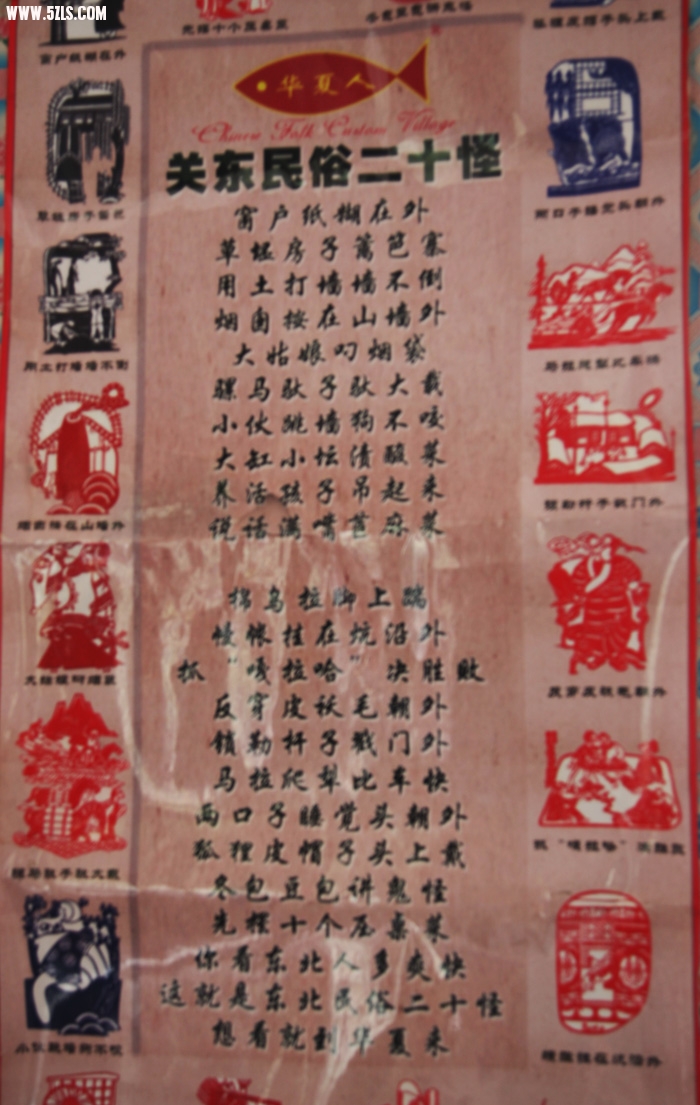 WWW.5ZLS.COM
华夏人
Chinese Folk Custom Village
关东民俗二十怪
窗户纸糊在外
草坯房子篱笆寨
用土打墙墙不倒
烟囱按在山墙外
大姑娘叼烟袋
骡马驮子驮大载
小伙跳墙狗不咬
大缸小坛渍酸菜
养活孩子吊起来
说话满嘴苣麻菜
棉乌拉脚上踹
幔帐挂在炕沿外
抓“嘎拉哈”决胜败
反穿皮袄毛朝外
锁勒杆子戳门外
马拉爬犁比车快
两口子睡觉头朝外
狐狸皮帽子头上戴
冬包豆包讲鬼怪
先摆十个压桌菜
你看东北人多爽快
这就是东北民俗二十怪
想看就到华夏来
窗户纸糊在外
用土打墙墙不倒
烟囱按在山墙外
大姑娘叼烟袋
骡马驮子驮大载
小伙跳墙狗不咬
先摆十个压桌菜
狐狸皮帽子头上戴
两口子睡觉头朝外
锁勒杆子戳门外
反穿皮袄毛朝外
抓“嘎拉哈”决胜败
幔帐挂在炕沿外